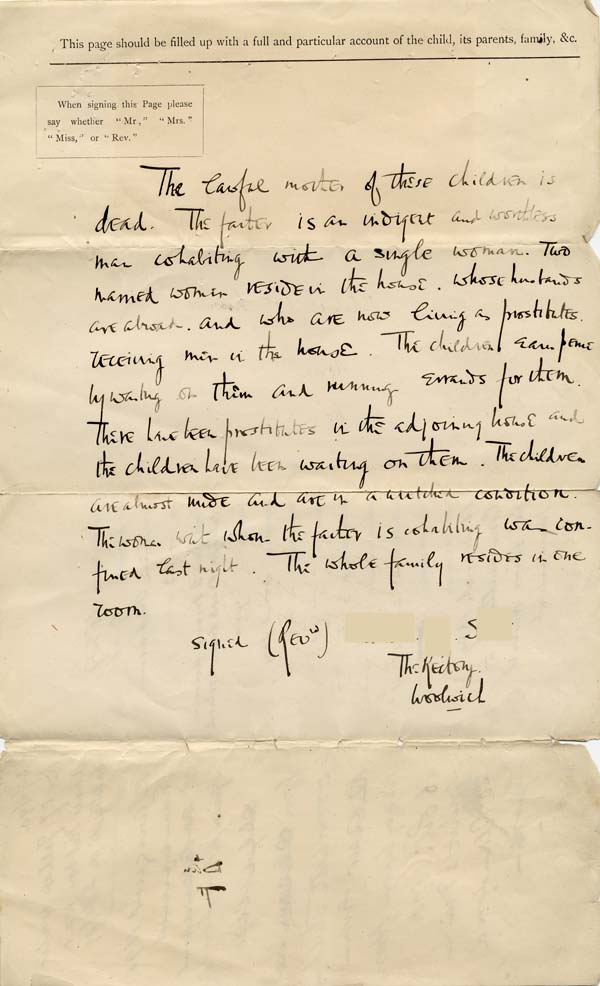 This page should be filled up with a full and particular account of the child, its parents, family, &c.
When signing this Page please
say whether "Mr," "Mrs."
"Miss," or "Rev."
The mother of these children is
dead. The father is an indigent and worthless
man cohabiting with a single woman. Two
married women reside in the house. whose husbands
are abroad. and who are now living as prostitutes.
receiving men in the house. The children earn pence
by waiting on them and running errands for them.
There have been prostitutes in the adjoining house and
the children have been waiting on them. The children
are almost nude and are in a wretched condition.
The woman with whom the father is cohabiting was con-
fined last night. The whole family resides in one
room.
signed (Revd) S
The Rectory.
Woolwich